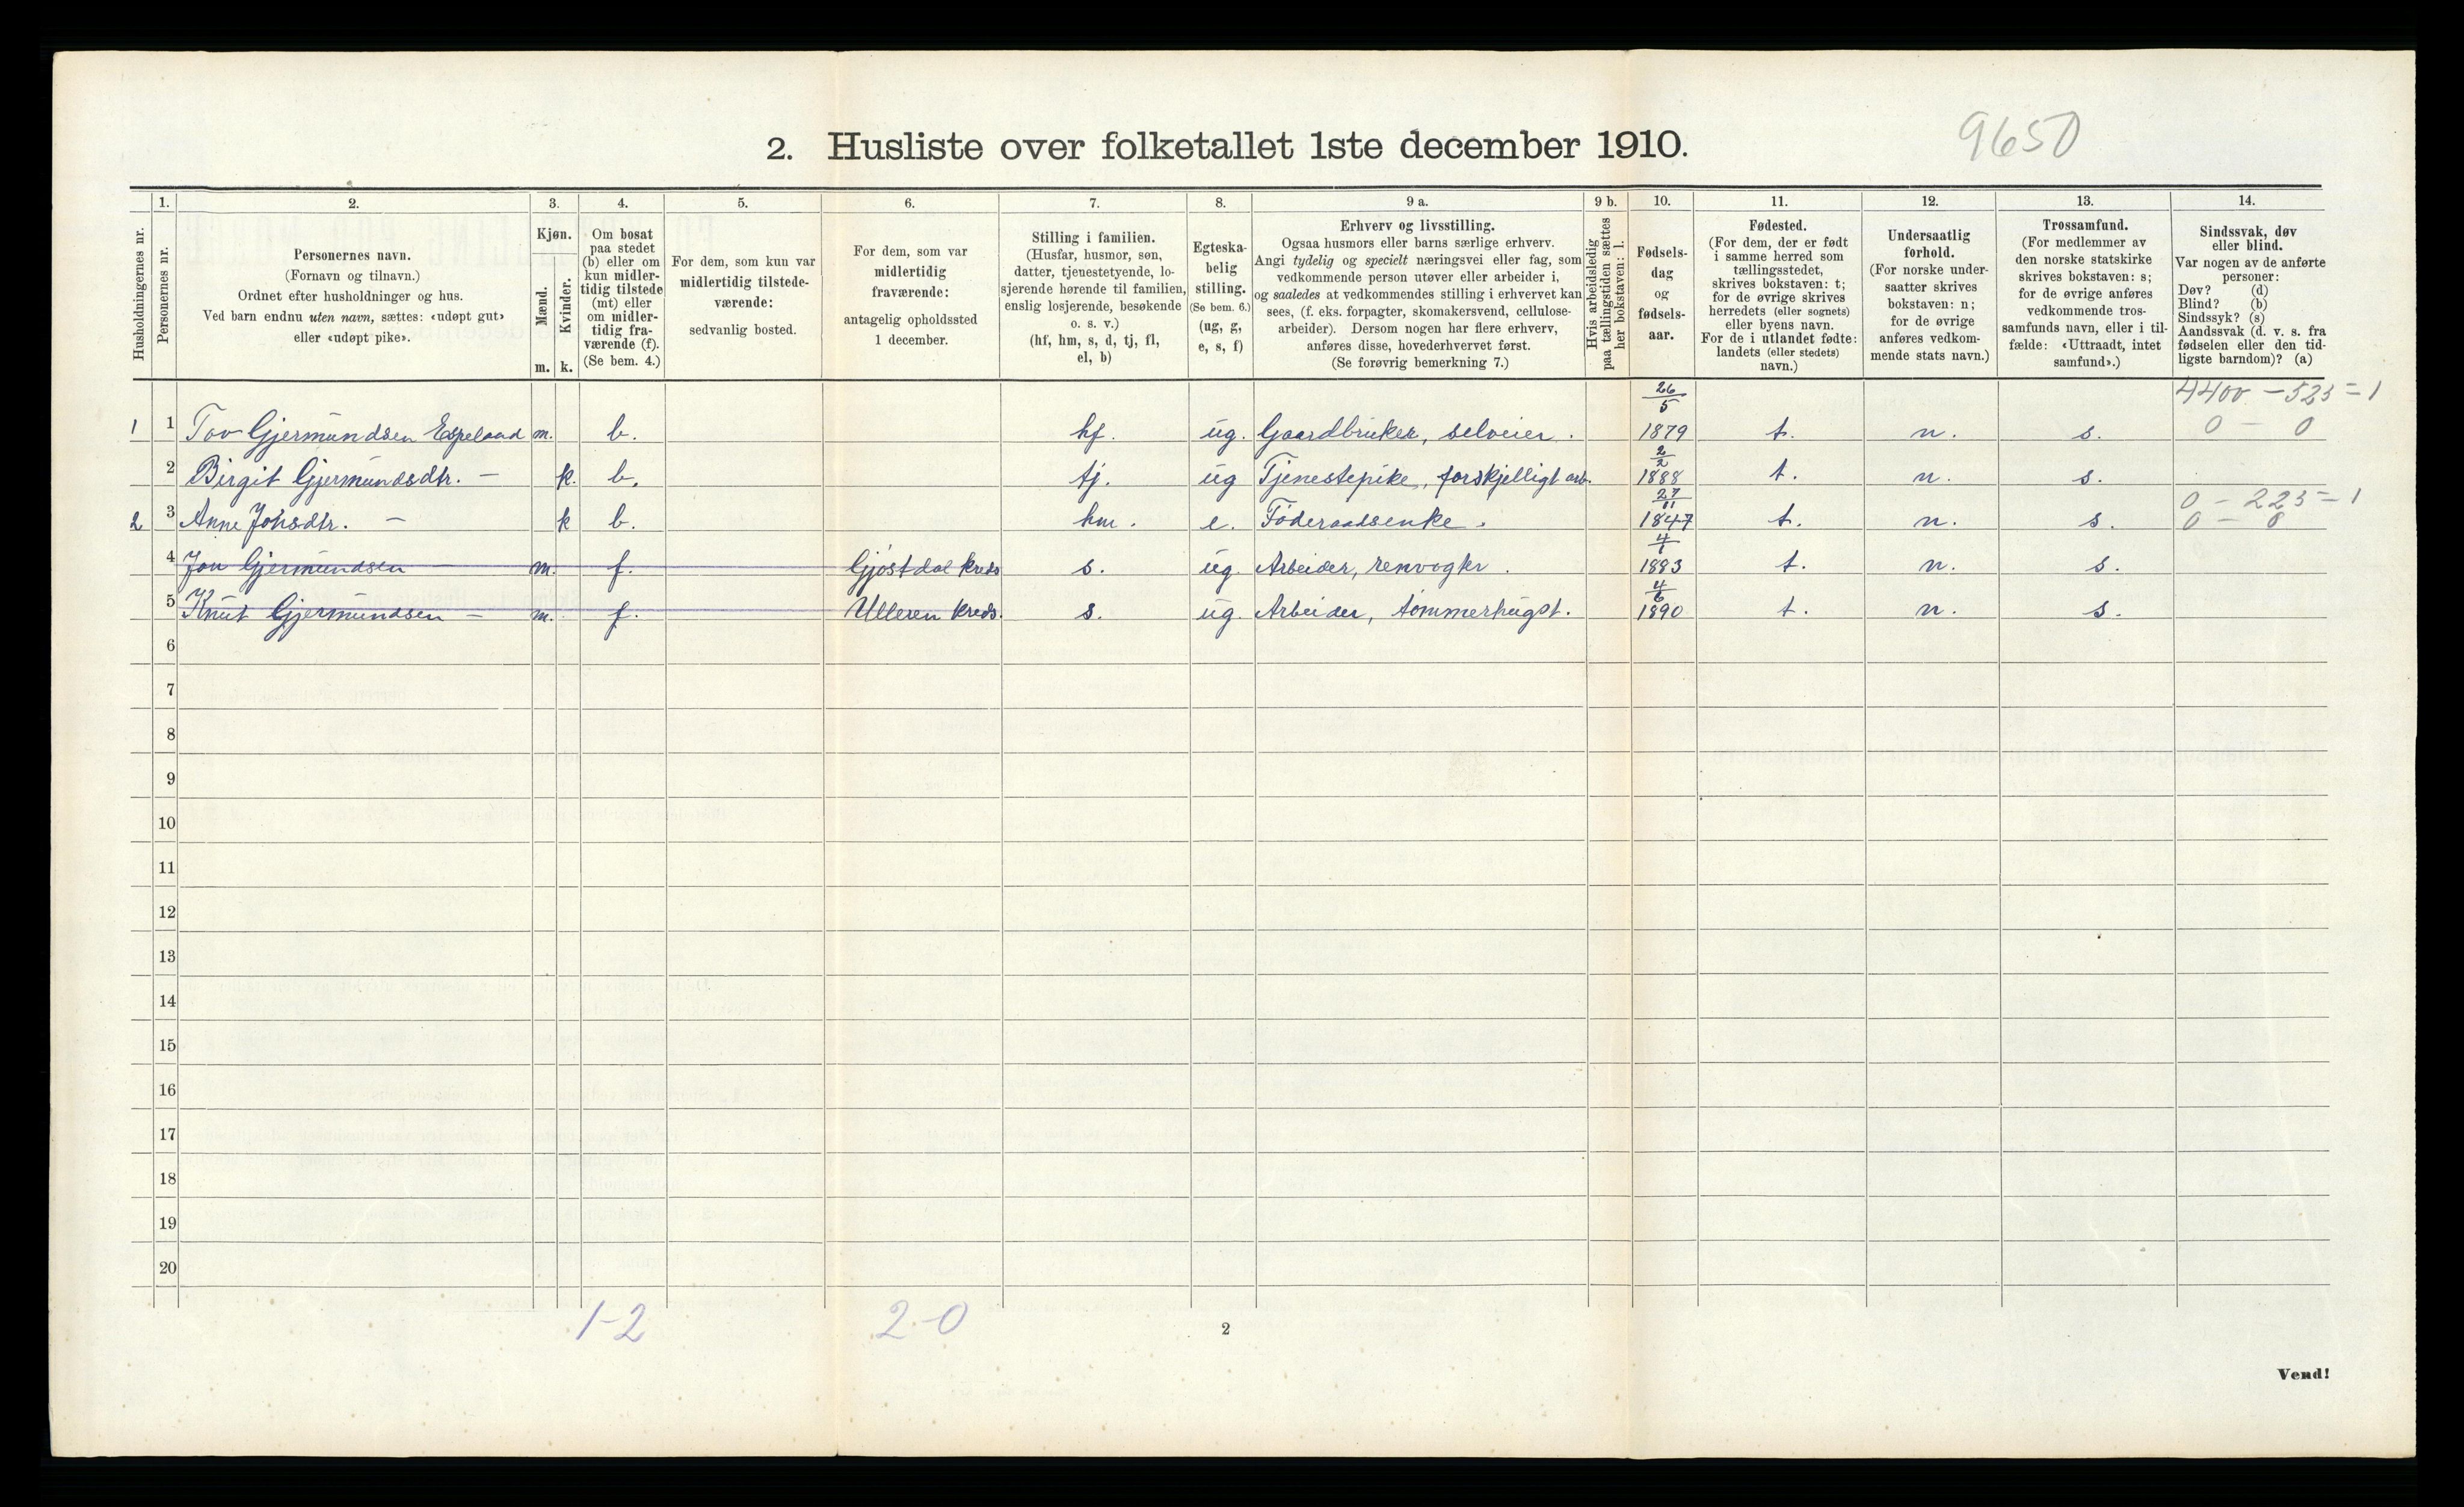 2. Husliste over folketallet 1ste december 1910.
9650
Husholdningernes nr.
1. Personernes nr.
2. Personernes navn. (Fornavn og tilnavn.) Ordnet efter husholdninger og hus. Ved barn endnu uten navn, sættes: «udøpt gut» eller «udøpt pike».
3. Kjøn. Mænd. m. Kvinder. k.
4. Om bosat paa stedet (b) eller om kun midler-tidig tilstede (mt) eller om midler-tidig fra-værende (f). (Se bem. 4.)
5. For dem, som kun var midlertidig tilstede-værende: sedvanlig bosted.
6. For dem, som var midlertidig fraværende: antagelig opholdssted 1 december.
7. Stilling i familien. (Husfar, husmor, søn, datter, tjenestetyende, lo-sjerende hørende til familien, enslig losjerende, besøkende o. s. v.) (hf, hm, s, d, tj, fl, el, b)
8. Egteska-belig stilling. (Se bem. 6.) (ug, g, e, s, f)
9 a. Erhverv og livsstilling. Ogsaa husmors eller barns særlige erhverv. Angi tydelig og specielt næringsvei eller fag, som vedkommende person utøver eller arbeider i, og saaledes at vedkommendes stilling i erhvervet kan sees, (f. eks. forpagter, skomakersvend, cellulose-arbeider). Dersom nogen har flere erhverv, anføres disse, hovederhvervet først. (Se forøvrig bemerkning 7.)
9 b. Hvis arbeidsledig paa tællingstiden sættes her bokstaven: l.
10. Fødsels-dag og fødsels-aar.
11. Fødested. (For dem, der er født i samme herred som tællingsstedet, skrives bokstaven: t; for de øvrige skrives herredets (eller sognets) eller byens navn. For de i utlandet fødte: landets (eller stedets) navn.)
12. Undersaatlig forhold. (For norske under-saatter skrives bokstaven: n; for de øvrige anføres vedkom-mende stats navn.)
13. Trossamfund. (For medlemmer av den norske statskirke skrives bokstaven: s; for de øvrige anføres vedkommende tros-samfunds navn, eller i til-fælde: «Uttraadt, intet samfund».)
14. Sindssvak, døv eller blind. Var nogen av de anførte personer: Døv? (d) Blind? (b) Sindssyk? (s) Aandssvak (d. v. s. fra fødselen eller den tid-ligste barndom)? (a)
4400 - 523 = 1
1 1 Tov Gjermundsen Espeland m. b. hf. ug. Gaardbruker, selveier. 26/5 1879 t. n. s. 0 - 0
2 Birgit Gjermundsdtr. - k. b. tj. ug Tjenestepike, forskjelligt arb. 2/2 1888 t. n. s.
0 - 223 = 1
2 3 Anne Johsdtr. - k b. hm. e. Föderaadsenke. 27/11 1847 t. n. s. 0 - 0
4 Jon Gjermundsen m. f. Gjöstdal kreds s. ug. Arbeider, renvogter. 4/1 1883 t. n. s.
5 Knut Gjermundsen - m. f. Ulleren kreds. s. ug. Arbeider, tömmerhugst. 4/6 1890 t. n. s.
6
7
8
9
10
11
12
13
14
15
16
17
18
19
20
1-2 2-0
2
Vend!